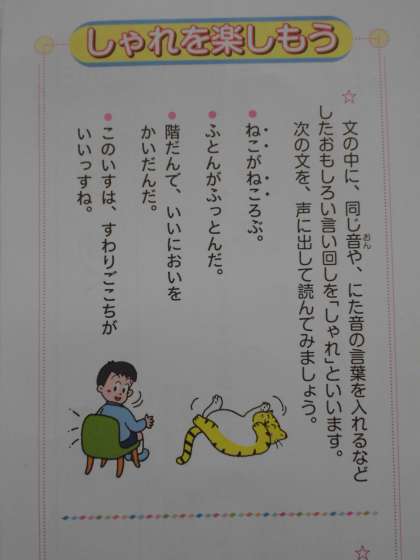 しゃれを楽しもう
☆ 文の中に、同じ音や、にた音の言葉を入れるなど
おん
したおもしろい言い回しを「しゃれ」といいます。
次の文を、声に出して読んでみましょう。
● ねこがねころぶ。
● ふとんがふっとんだ。
● 階だんで、いいにおいを
かいだんだ。
● このいすは、すわりごこちが
いいっすね。
☆